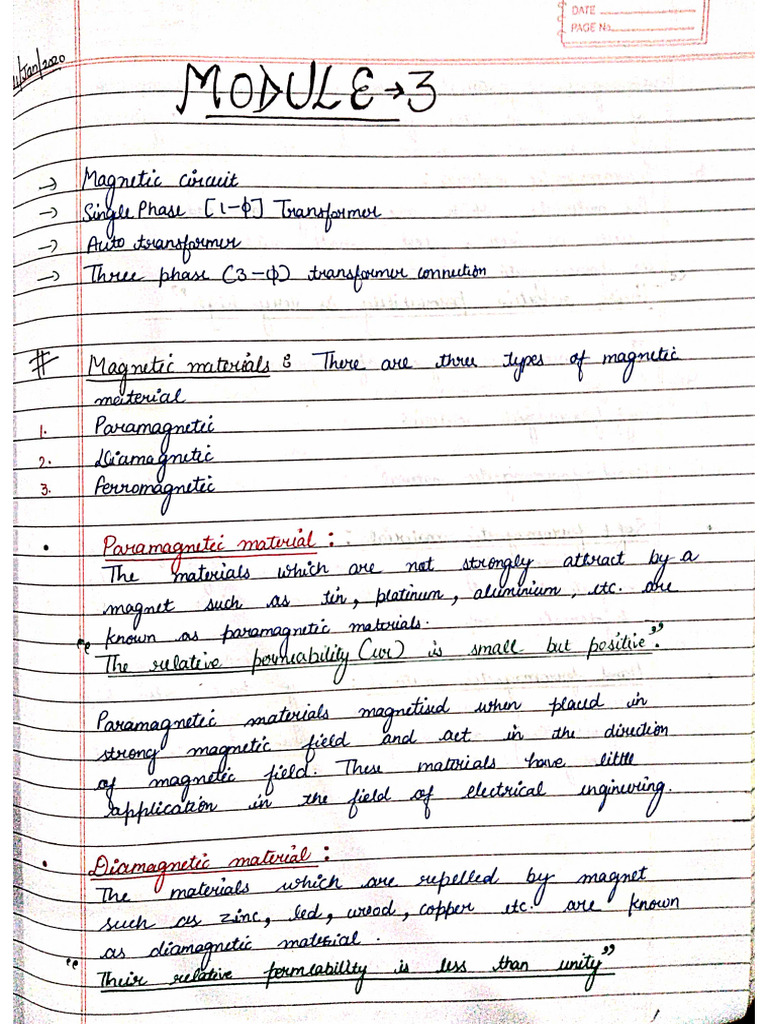 DATE
PAGE No.
11/Jan/2020
MODULE → 3
→ Magnetic circuit
→ Single Phase [1-ф] Transformer
→ Auto transformer
→ Three phase (3-ф) transformer connection
# Magnetic materials : There are three types of magnetic
material
1. Paramagnetic
2. Diamagnetic
3. ferromagnetic
• Paramagnetic material :
The materials which are not strongly attract by a
magnet such as tin, platinum, aluminium, etc. are
known as paramagnetic materials.
"The relative permeability (ur) is small but positive".
Paramagnetic materials magnetised when placed in
strong magnetic field and act in the direction
of magnetic field. These materials have little
application in the field of electrical engineering.
• Diamagnetic material :
The materials which are repelled by magnet
such as zinc, led, wood, copper etc. are known
as diamagnetic material.
"Their relative permeability is less than unity"